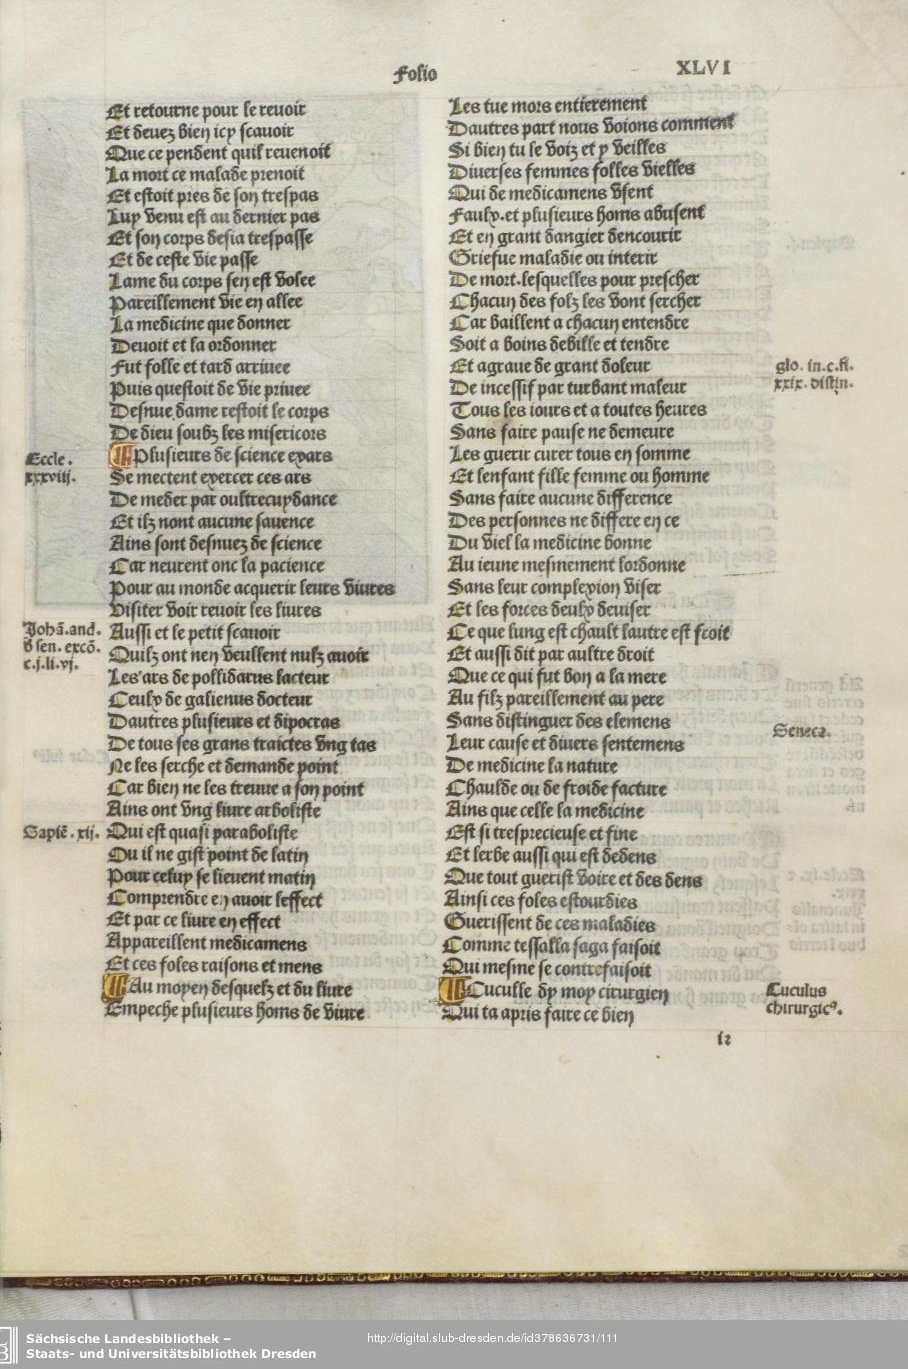 Folio
XLVI
Et retourne pour le revoir
Et devez bien icy scavoir
Que ce pendent quil revenoit
La mort ce malade prenoit
Et estoit pres de son trespas
Luy venu est au dernier pas
Et son corps desia trespasse
Et de ceste vie passe
Lame du corps sen est volee
Pareillement vie en allee
La medicine que donner
Devoit et la ordonner
Fut folle et tard arrivee
Puis questoit de vie privee
Desnue. dame restoit le corps
De dieu soubz les misericors
Eccle.
xxxviij.
Plusieurs de science expars
Se mectent exercer ces ars
De meder par oultrecuydance
Et ilz nont aucune savence
Ains sont desnuez de science
Car neurent onc la pacience
Pour au monde acquerir leurs vivres
Visiter voir revoir les livres
Johā. and.
d sen. excō.
c.j.li.vj.
Aussi et le petit scavoir
Quilz ont nen veullent nulz avoir
Les ars de pollidarus lacteur
Ceulx de galienus docteur
Dautres plusieurs et dipocras
De tous ses grans traictes vng tas
Ne les serche et demande point
Car bien ne les treuve a son point
Ains ont vng livre arboliste
Sapiē. xij.
Qui est quasi paraboliste
Ou il ne gist point de latin
Pour celuy se lievent matin
Comprendre en avoir leffect
Et par ce livre en effect
Appareillent medicamens
Et ces foles raisons et mens
Au moyen desquelz et du livre
Empeche plusieurs homs de vivre
Les tue mors entierement
Dautres part nous voions comment
Si bien tu le voiz et y veilles
Diverses femmes folles vielles
Qui de medicamens vsent
Faulx. et plusieurs homs abusent
Et en grant dangier dencourir
Griefue maladie ou interir
De mort. lesquelles pour prescher
Chacun des folz les vont sercher
Car baillent a chacun entendre
Soit a boins debille et tendre
glo. in. c. fi.
xxix. distin.
Et agrave de grant doleur
De incessif par turbant maleur
Tous les iours et a toutes heures
Sans faire pause ne demeure
Les guerir curer tous en somme
Et lenfant fille femme ou homme
Sans faire aucune difference
Des personnes ne differe en ce
Du viel la medicine donne
Au ieune mesmement lordonne
Sans leur complexion viser
Et les forces deulx deviser
Ce que lung est chault lautre est froit
Et aussi dit par aultre droit
Que ce qui fut bon a la mere
Au filz pareillement au pere
Sans distinguer des elemens
Seneca.
Leur cause et divers sentemens
De medicine la nature
Chaulde ou de froide facture
Ains que celle la medicine
Est si tresprecieuse et fine
Et lerbe aussi qui est dedens
Que tout guerist voire et des dens
Ainsi ces foles estourdies
Guerissent de ces maladies
Comme tessalla saga faisoit
Qui mesme se contrefaisoit
Cuculus
chirurgicꝰ.
Cuculle dy moy cirurgien
Qui ta apris faire ce bien
Sächsische Landesbibliothek –
Staats- und Universitätsbibliothek Dresden
http://digital.slub-dresden.de/id378636731/111